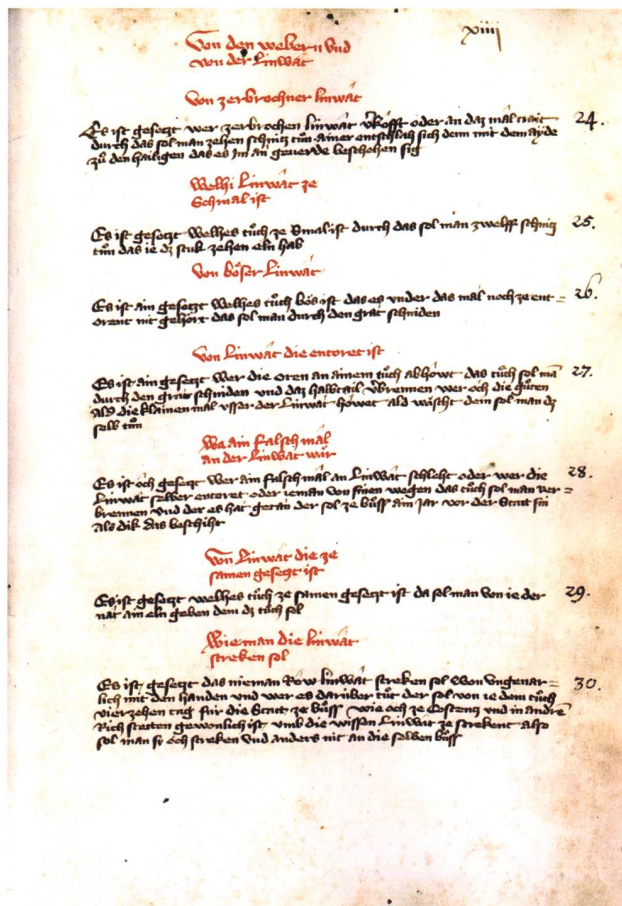 xiiij
Von den webern vnd
von der Linwat
Von zerbrochner linwăt
Es ist gesetzt wer zerbrochen linwăt v̓kŏfft oder an daz măl trait 24.
durch das sol man zehen schnitz tŭn ainer entschlah sich denn mit dem ayde
zŭ den hailigen das es Im ăn geuerde beschehen sig
Welhi Linwăt ze
Schmal ist
Es ist gesetzt welhes tŭch ze Smal ist durch das sol man zwelff schnitz 25.
tŭn das ie dz stuk zehen eln hab
Von bŏser Linwăt
Es ist ain gesetzt Welhes tŭch bŏs ist das es vnder das măl noch ze ent= 26.
orent nit gehŏrt das sol man durch den grăt schniden
Von Linwăt die entoret ist
Es ist ain gesetzt Wer die oren an ainem tŭch abhŏwt das tŭch sol mā 27.
durch den grăt schniden vnd daz halbtail v̓brennen wer och die gŭten
Ald die klainen mal vsser der Linwat hŏwet ald wăscht dem sol man dz
selb tŭn
Wa ain falsch măl
an der Linwăt wăr
Es ist ŏch gesetzt Wer ain falsch măl an Linwăt schleht oder wer die 28.
Linwat selber entoret oder ieman von sinen wegen das tŭch sol man ver=
brennen vnd der es hat getăn der sol ze bŭss ain Jar vor der Statt sin
Als dik das beschiht
Von Linwat die ze
samen gesetzt ist
Es ist gesetzt welhes tŭch ze samen gesetzt ist da sol man von ie der 29.
nat ain eln geben dem dz tŭch sol
Wie man die linwăt
streken sol
Es ist gesetzt das nieman Row linwăt streken sol Won vngenar= 30.
lich mit den handen vnd wer es darüber tŭt der sol von ie dem tŭch
vierzehen tag für die Statt ze bŭss wie och ze Costentz vnd in andrē
Rich stetten gewonlich ist vmb die wissen Linwăt ze strekent also
sol man sy ŏch streken vnd anders nit an die selben bŭss